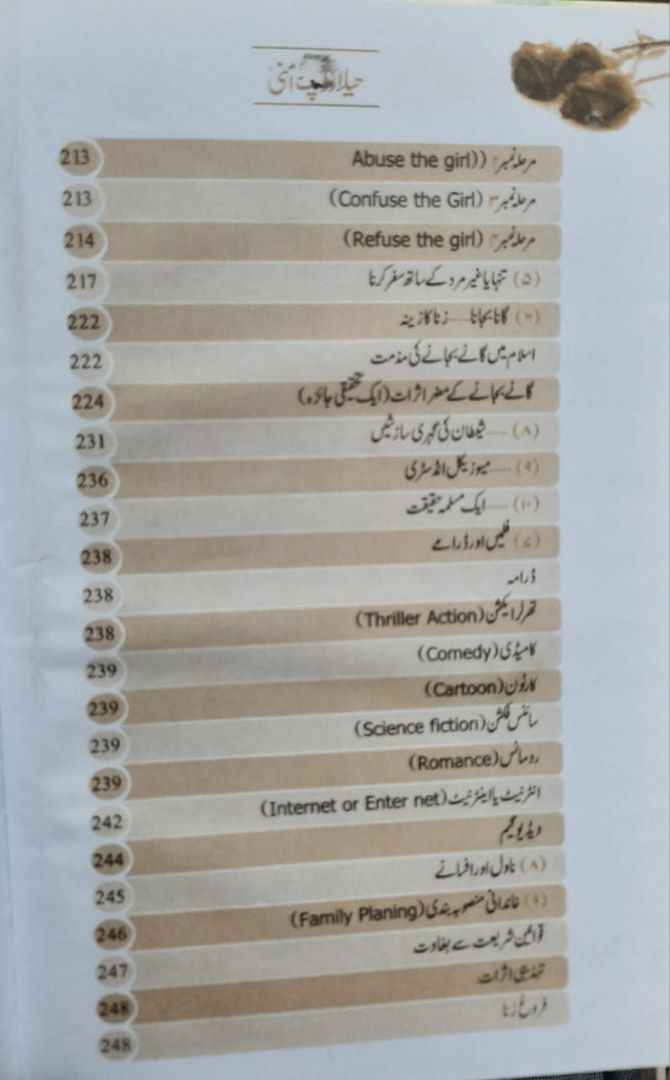 حیا
مرحلہ نمبر ((Abuse the girl 213
مرحلہ نمبر ۳ (Confuse the Girl) 213
مرحلہ نمبر ۴ (Refuse the girl) 214
(۵) تنہا یا غیر مرد کے ساتھ سفر کرنا 217
(۶) گانا بجانا—زنا کا زینہ 222
اسلام میں گانے بجانے کی مذمت 222
گانے بجانے کے مضر اثرات (ایک تحقیقی جائزہ) 224
(۸)—شیطان کی گہری سازشیں 231
(۹)—میوزیکل انڈسٹری 236
(۱۰)—ایک مسلمہ حقیقت 237
(۷) فلمیں اور ڈرامے 238
ڈرامہ 238
تھرلر ایکشن (Thriller Action) 238
کامیڈی (Comedy) 239
کارٹون (Cartoon) 239
سائنس فکشن (Science fiction) 239
رومانس (Romance) 239
انٹرنیٹ یا اینٹرنیٹ (Internet or Enter net) 242
ویڈیو گیم 244
(۸) ناول اور افسانے 245
(۹) خاندانی منصوبہ بندی (Family Planing) 246
قوانین شریعت سے بغاوت 247
اثرات 248
فروغ زنا 248